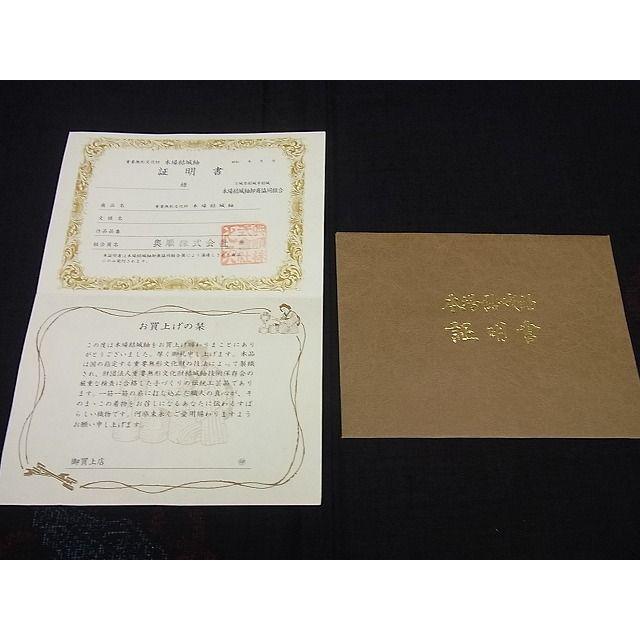 重要無形文化財 本場結城紬
証明書
様
本場結城紬卸商協同組合
商品名 重要無形文化財 本場結城紬
文様名
作品品番
組合員名 奥順株式会社
お買上げの栞
この度は本場結城紬をお買上げ賜わりまことにあり
がとうございました。厚く御礼申し上げます。本品
は国の指定する重要無形文化財の技法によって製織
され、財団法人重要無形文化財結城紬技術保存会の
厳重な検査に合格した手づくりの伝統工芸品であり
ます。一筋一筋の糸に打ち込んだ職人の真心が、そ
のまゝこの着物をお召しになるあなたに伝わるすば
らしい織物です。何卒末永くご愛用賜わりますよう
お願い申し上げます。
御買上店
本場結城紬
証明書